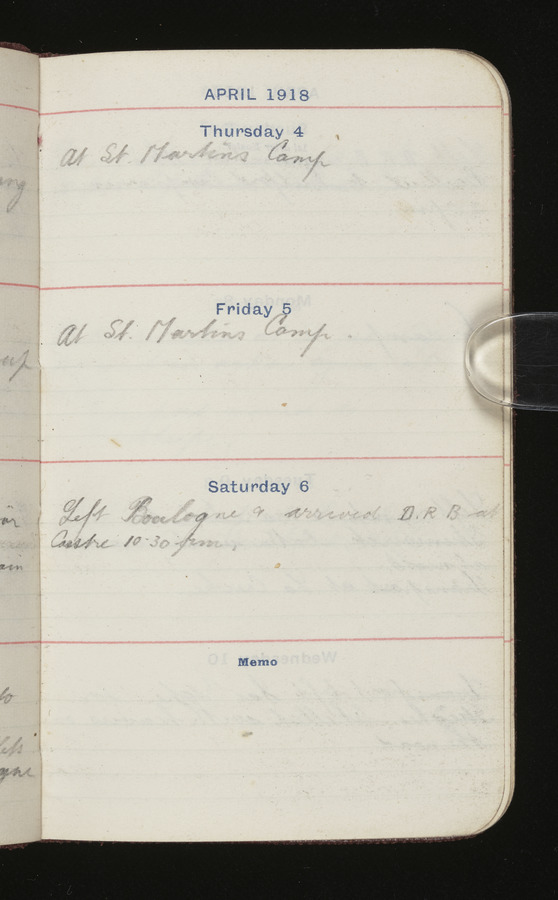 APRIL 1918
Thursday 4
At St. Martins Camp
Friday 5
At St. Martins Camp.
Saturday 6
Left Boulogne & arrived D.R B at
Castre 10-30 pm.
Memo